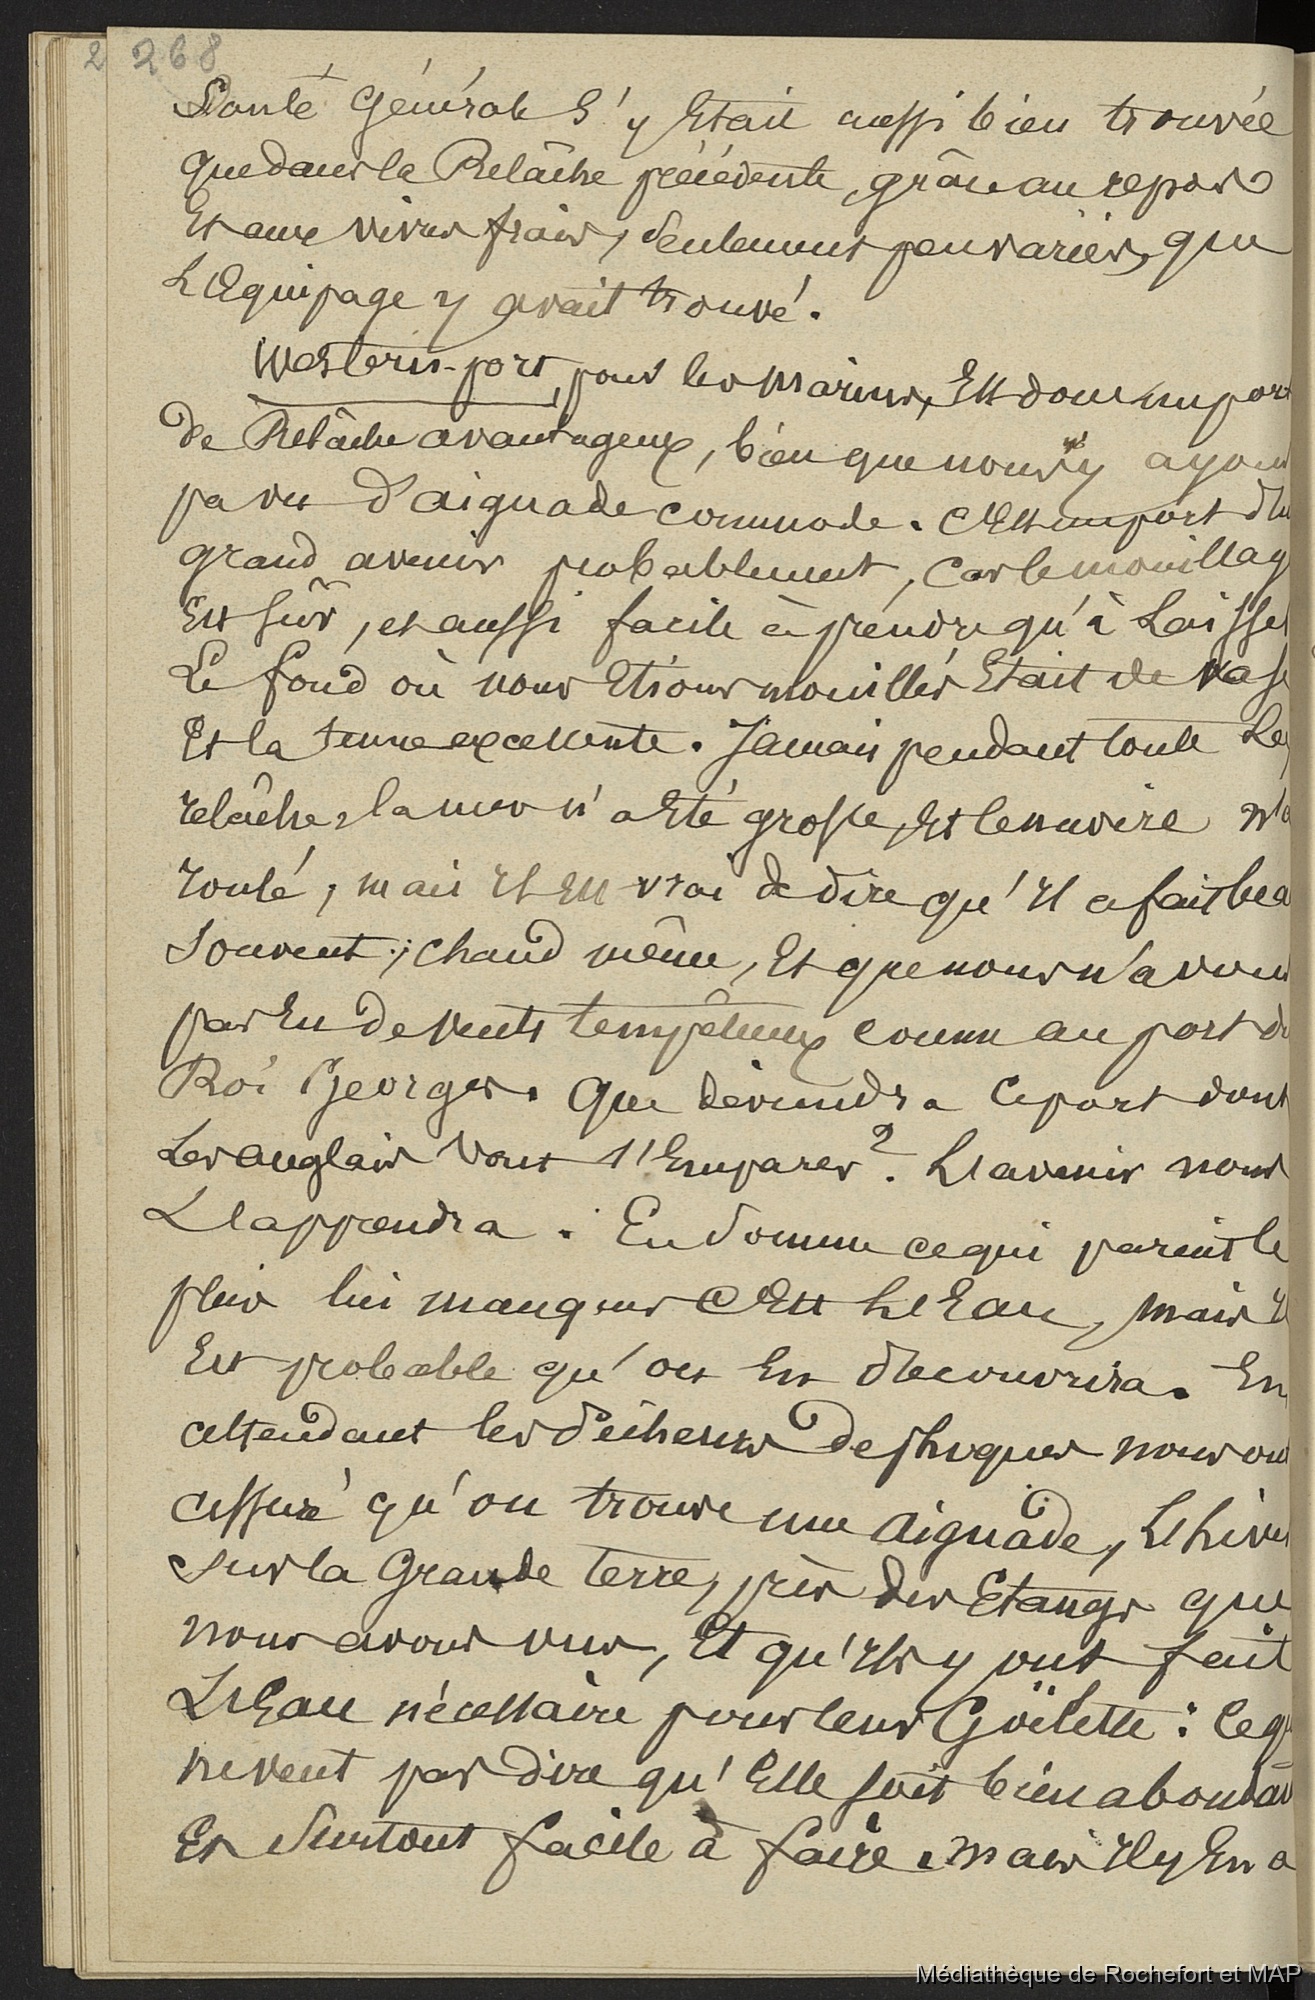 268
Santé Générale S'y Etait aussi bien trouvée
que dans la Relâche précédente, grâce au repos
Et aux vivres frais, seulement peu variés, que
L'Equipage y avait trouvé.
Western-port, pour les marins, Est donc un port
de Relâche avantageux, bien que nous n'y ayons
pas vu d'aiguade commode. C'Est un port d'un
grand avenir probablement, car le mouillag
Est sûr, et aussi facile à prendre qu'à Laisser
Le fond où nous Etions mouillés Etait de vase
Et la tenue excellente. Jamais pendant toute La
relâche, la mer n'a Eté grosse, Et le navire n'a
roulé, mais Il Est vrai de dire qu'Il a fait bea
souvent; chaud même, Et que nous n'avons
pas Eu de vents tempêtueux comme au port du
Roi Georges. Que deviendra ce port dont
Les anglais vont s'Emparer ? L'avenir nous
L'apprendra. En somme ce qui parait le
plus lui manquer C'Est L'Eau, mais Il
Est probable qu'on En découvrira. En
attendant les Pêcheurs de phoques nous ont
assuré qu'on trouve une aiguade, L'hiver
sur la Grande terre, près des Etangs que
nous avons vus, Et qu'Ils y ont fait
L'Eau nécessaire pour leur Goëlette : Ce q
ne veut pas dire qu'Elle soit bien abondan
Et Surtout facile à faire. mais Il y En a
Médiathèque de Rochefort et MAP